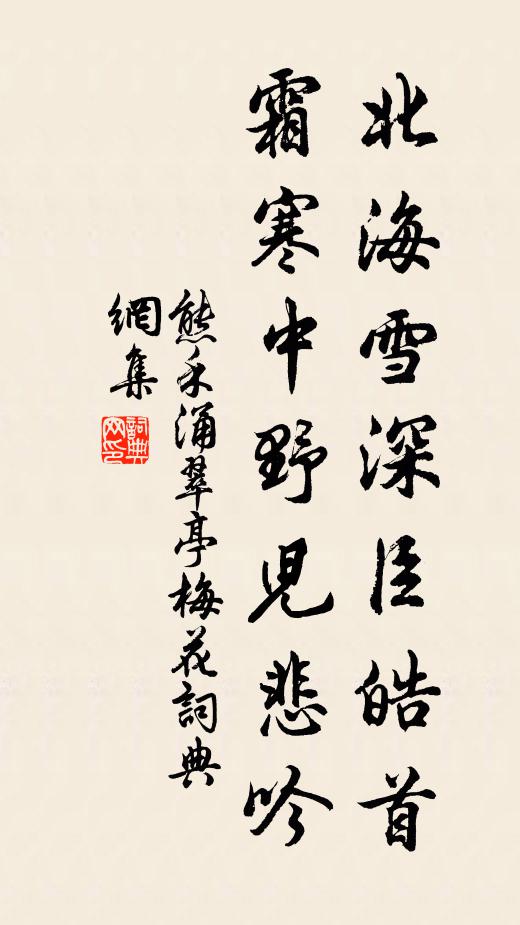 北海雪深臣皓首
霜寒中野児悲吟
熊禾涌翠亭梅花詞典
網集
詞典
网印